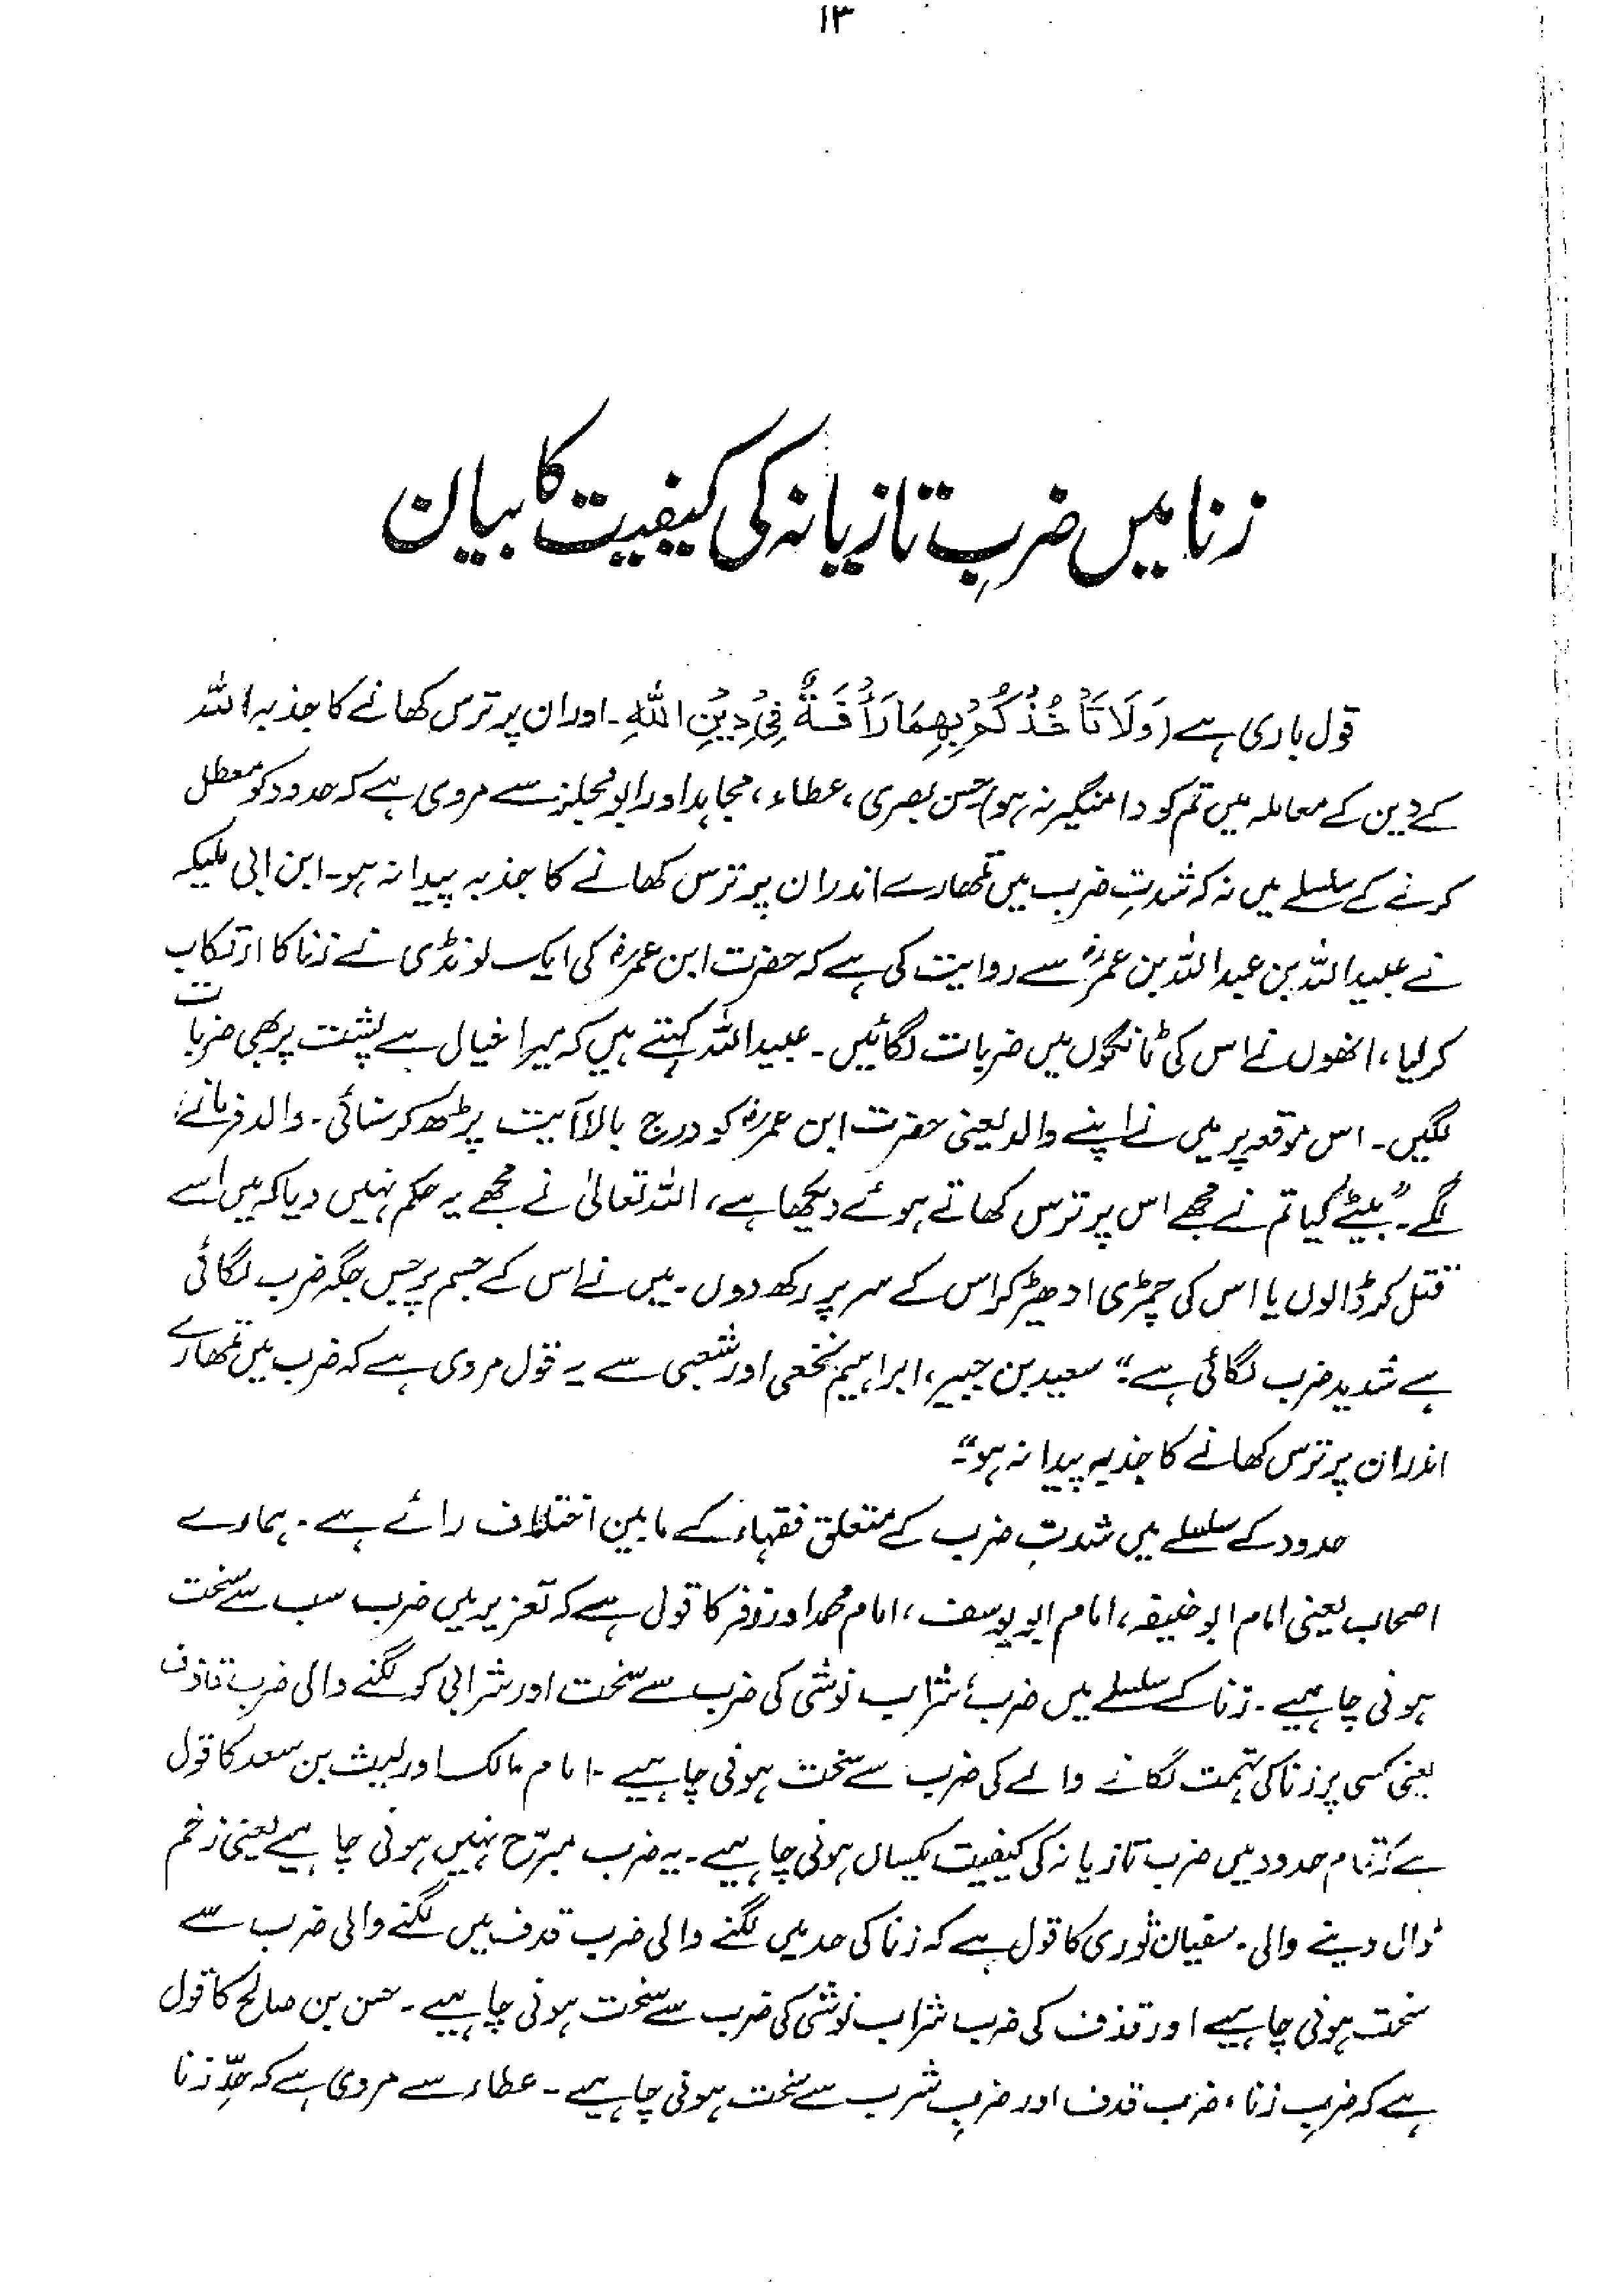 ۱۳
زنا میں ضربِ تازیانہ کی کیفیت کا بیان
قول باری ہے (وَلَا تَأْخُذْكُمْ بِهِمَا رَأْفَةٌ فِي دِيْنِ اللهِ۔ اور ان پر ترس کھانے کا جذبہ اللہ
کے دین کے معاملہ میں تم کو دامنگیر نہ ہو) حسن بصری، عطاء، مجاہد اور ابو مجلز سے مروی ہے کہ حدود کو معطل
کرنے کے سلسلے میں نہ کہ شدتِ ضرب میں تمھارے اندر ان پر ترس کھانے کا جذبہ پیدا نہ ہو۔ ابن ابی ملیکہ
نے عبیداللہ بن عبداللہ بن عمرؓ سے روایت کی ہے کہ حضرت ابن عمرؓ کی ایک لونڈی نے زنا کا ارتکاب
کر لیا، انھوں نے اس کی ٹانگوں میں ضربات لگائیں۔ عبیداللہ کہتے ہیں کہ میرا خیال ہے پشت پر بھی ضربات
لگیں۔ اس موقعہ پر میں نے اپنے والد یعنی حضرت ابن عمرؓ کو درج بالا آیت پڑھ کر سنائی۔ والد فرمانے
لگے۔ "بیٹے کیا تم نے مجھے اس پر ترس کھاتے ہوئے دیکھا ہے، اللہ تعالیٰ نے مجھے یہ حکم نہیں دیا کہ میں اسے
قتل کر ڈالوں یا اس کی چمڑی ادھیڑ کر اس کے سر پر رکھ دوں۔ میں نے اس کے جسم پر جس جگہ ضرب لگائی
ہے شدید ضرب لگائی ہے۔" سعید بن جبیر، ابراہیم نخعی اور شعبی سے یہ قول مروی ہے کہ ضرب میں تمھارے
اندر ان پر ترس کھانے کا جذبہ پیدا نہ ہو"۔
حدود کے سلسلے میں شدتِ ضرب کے متعلق فقہاء کے مابین اختلاف رائے ہے۔ ہمارے
اصحاب یعنی امام ابو حنیفہ، امام ابو یوسف، امام محمد اور زفر کا قول ہے کہ تعزیر میں ضرب سب سے سخت
ہونی چاہیے۔ زنا کے سلسلے میں ضرب، شراب نوشی کی ضرب سے سخت اور شرابی کو لگنے والی ضرب قاذف
یعنی کسی پر زنا کی تہمت لگانے والے کی ضرب سے سخت ہونی چاہیے۔ امام مالک اور لیث بن سعد کا قول
ہے کہ تمام حدود میں ضرب تازیانہ کی کیفیت یکساں ہونی چاہیے۔ یہ ضرب مبرّح نہیں ہونی چاہیے یعنی زخم
ڈال دینے والی۔ سفیان ثوری کا قول ہے کہ زنا کی حد میں لگنے والی ضرب قدف میں لگنے والی ضرب سے
سخت ہونی چاہیے اور قذف کی ضرب شراب نوشی کی ضرب سے سخت ہونی چاہیے۔ حسن بن صالح کا قول
ہے کہ ضربِ زنا، ضرب قدف اور ضربِ شرب سے سخت ہونی چاہیے۔ عطاء سے مروی ہے کہ حدِّ زنا